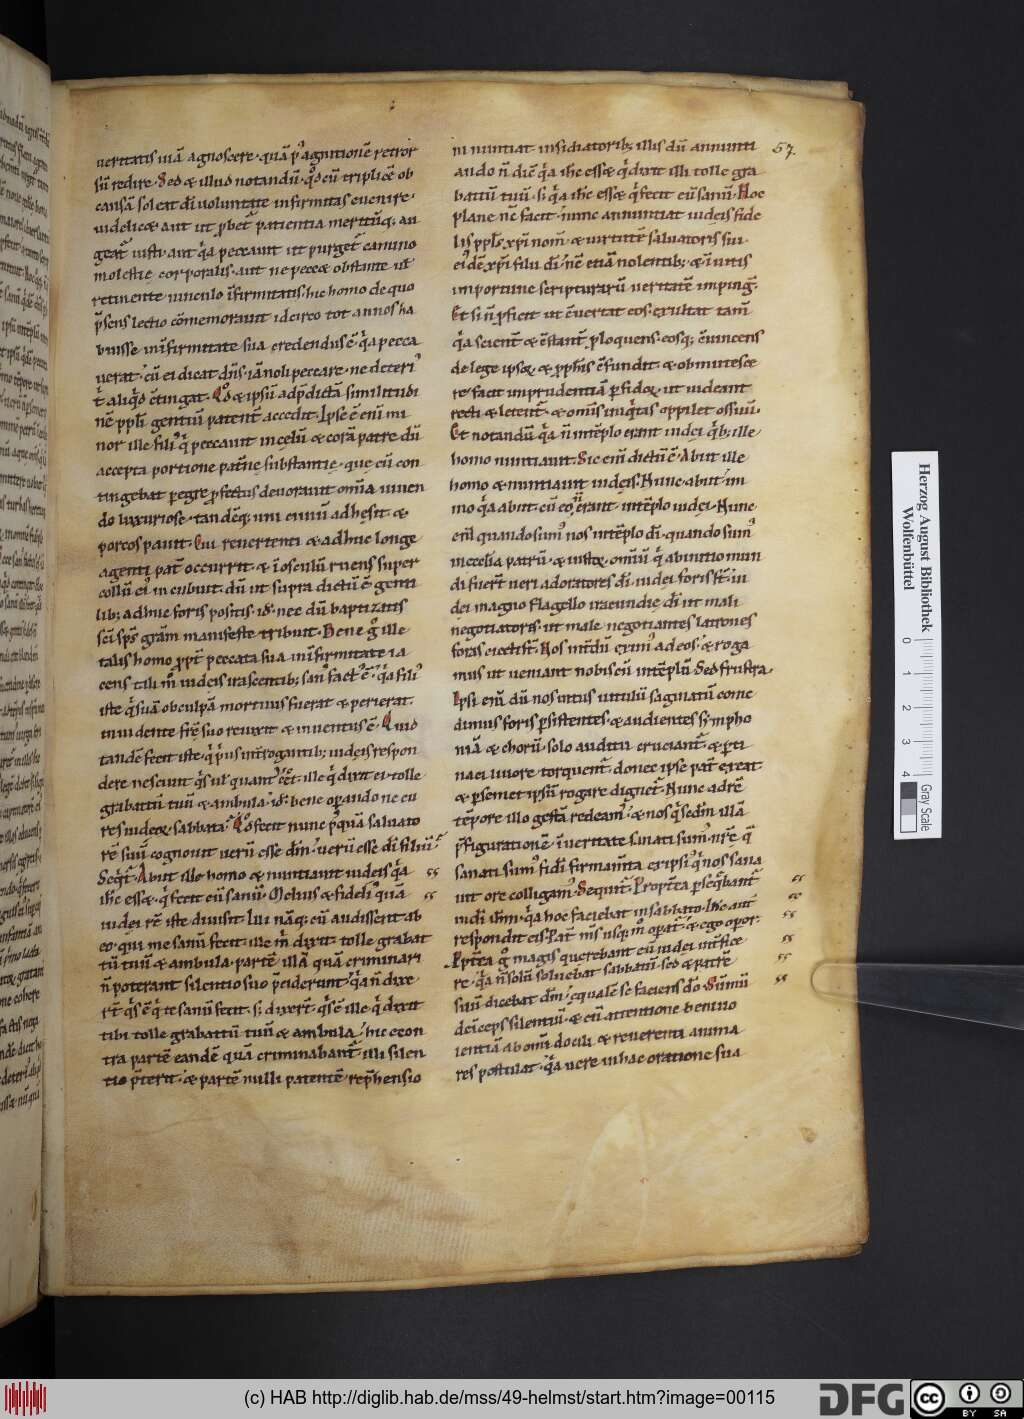 ueritatis uiā agnoscere· quā p̄ agnitionē retror
sū redire· Sed & illud notandū· qd̄ cū triplicē ob
causā soleat dī uoluntate infirmitas euenire·
uidelic& aut ut ꝓbet̄ patientia meritūq; au
geat̄ iusti· aut q̄a peccauit ut purget̄ camino
molestię corporalis· aut ne pecc& obstante ul̄
retinente uinculo īfirmitatis· hic homo de quo
p̄sens lectio cōmemorauit idcirco tot annos ha
buisse in īfirmitate sua credendus ē· q̄a pecca
uerat· cū ei dicat dn̄s· iā noli peccare· ne deteri᾽
t̄ aliq̄d ctingat·
nē ppl̄i gentiū patent̄ accedit· Ipse ē enī mi
nor ille fili᾽ q̄ peccauit in cęlū & corā patre dū
accepta portione pat̄nę substantię· que eū con
tingebat peregre ꝓfectus deuorauit om̄ia uiuen
do luxuriose· tandēq; uni ciuiū adhęsit· &
porcos pauit· Cui reuertenti & adhuc longe
agenti pat̄ occurrit· & ī osculū ruens super
collū ei᾽ incubuit· dū ut supra dictū ē· genti
lib; adhuc foris positis· id̄· nec dū baptizatis
sc̄i sp̄s grām manifeste tribuit· Bene g̊ ille
talis homo ꝓpt̄ peccata sua in īfirmitate ia
cens
iste q̄ suā ob culpā mortuus fuerat & perierat·
inuidente frē suo reuixit & inuentus ē· Quid
tandē fecit iste· q̄ p̄us int̄rogantib; iudeis respon
dere nesciuit
grabattū tuū & ambula· id̄· bene operando ne cu
res iudeo sabbata· Qd̄ fecit nunc p̄quā saluato
rē suū cognouit uerū esse dīm· uerū esse dī filiū·
Seq̄t̄· Abiit ille homo & nuntiauit iudeis q̄a
ih̄c ess& q̄ fecit eū sanū· Melius & fideli᾽ quā
iudei rē iste diuisit· Illi nāq; cū audissent ab
eo· qui me sanū fecit· ille m̄ dixit· tolle grabat
tū tuū & ambula· partē illā quā criminari
n̄ poterant silentio suo p̄terierunt· q̄a n̄ dixe
rt̄· q̄s ē q̄ te sanū fecit· s; dixert̄· q̄s ē ille q̄ dixit
tibi tolle grabattū tuū & ambula· hic econ
tra partē eandē quā criminabant̄ illi silen
tio p̄terit· & partē nulli patentē rep̄hensio
57.
ni nuntiat insidiatorib; illis dū annunti
ando n̄ dic̄ q̄a ih̄c ess& q̄ dixit illi tolle gra
battū tuū· s; q̄a ih̄c ess& q̄ fecit eū sanū· Hoc
plane nc̄ facit· nunc annuntiat iudeis fide
lis ppl̄s xp̄i nom̄· & uirtutē saluatoris sui·
ei᾽dē xp̄i filii dī· nc̄ etiā nolentib; & īuitis
importune scripturarū ueritatē imping̃·
Et si n̄ ꝓficit ut cuertat eos· exultat tam̄
q̄a scient̄ & cstant̄ ꝓloquens· eosq; cuincens
de lege ipso & ꝓph̄is cfundit & obmutesce
re facit imprudentiā ꝑfido· ut uideant
recti & lętent̄· & omīs iniq̄tas oppilet os suū·
Et notandū q̄a n̄ in tēplo erant iudei q̄b; ille
homo nuntiauit· Sic enī dictū ē· Abiit ille
homo & nuntiauit iudeis· Nunc abiit· im
mo q̄a abiit· cū eo n̄ erant in tēplo iudei· Nunc
enī quando sum᾽ nos in tēplo dī· quando sum᾽
in ecclia patrū· & iusto· omniū q̄ ab initio mun
di fuert̄ ueri adoratores dī· iudei foris st̄· iu
dei magno flagello iracundię dī· ut mali
negotiatoris· ut male negotiantes latrones
foras eiecti st̄· Nos int̄dū exim᾽ ad eos· & roga
mus ut ueniant nobiscū in tēplū· Sed frustra·
Ipsi enī dū nos intus uitulū saginatū come
dimus foris ꝑsistentes· & audientes sympho
niā & chorū· solo auditu cruciant̄· & ꝑti
naci liuore torquent̄· donec ipse pat̄ exeat
& ꝑsemet ipsū rogare dignet̄· Nunc ad rē
tēpore illo gestā redeam᾽· & nos q̄ sedm̄ illā
p̄figurationē· ī ueritate sinati sum᾽· nr̄ę q̄
sanati sum᾽ fidī firmam̄ta ex ipsi᾽ q̄ nos sana
uit ore colligam᾽· Sequit̄· Propt̄ea ꝑseq̄bant̄
iudī ih̄m· q̄a hoc faciebat in sabbato· Ih̄c aut̄
respondit eis· Pat̄ m̄s usq; m̊ operat̄· & ego operor·
Ꝓpt̄ea g̊ magis quęrebant eū iudei int̄fice
re· q̄a n̄ solū soluebat sabbatū· sed & patrē
suū dicebat dīm· ęqualē se faciens dō· Sūmū
deīceps silentiū· & cū attentione beniuo
lentiā ab omī docili & reuerenti anima
res postulat· q̄a uere in hac oratione sua
Herzog August Bibliothek
Wolfenbüttel
0 1 2 3 4 Gray Scale
(c) HAB http://diglib.hab.de/mss/49-helmst/start.htm?image=00115
DFG
cc BY SA